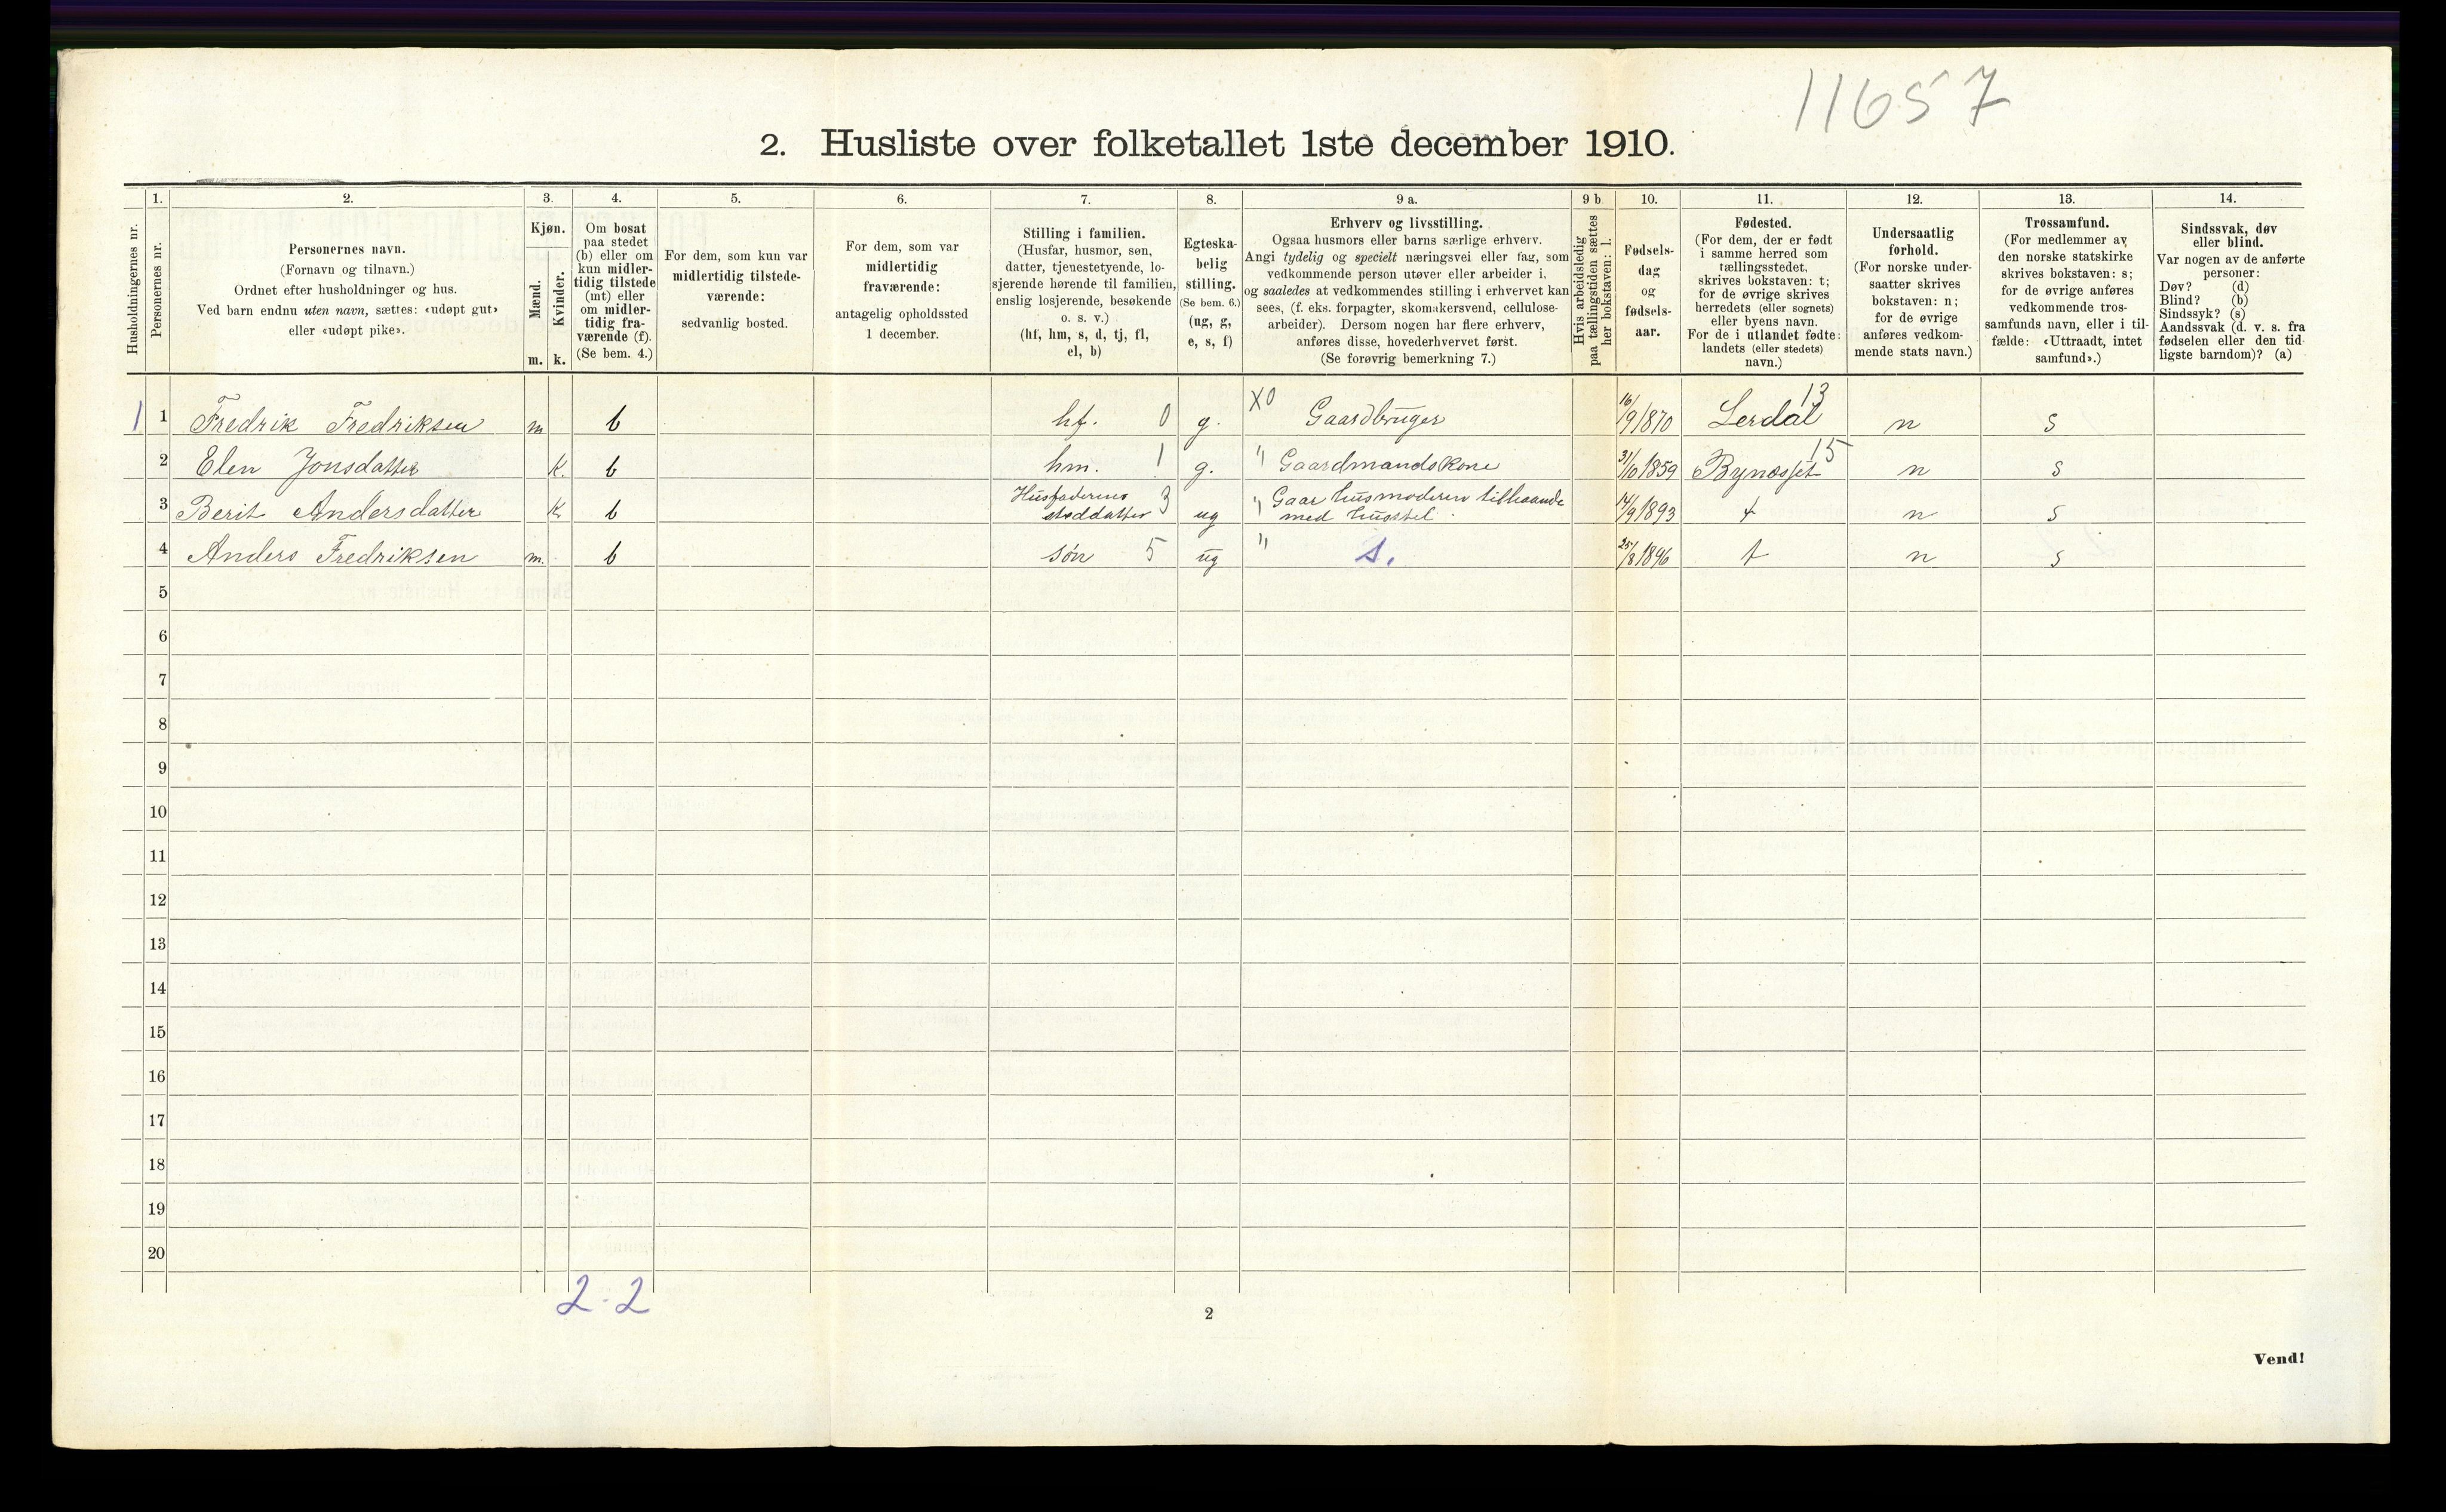 11657
2. Husliste over folketallet 1ste december 1910.
Husholdningernes nr.
1.
Personernes nr.
2.
Personernes navn.
(Fornavn og tilnavn.)
Ordnet efter husholdninger og hus.
Ved barn endnu uten navn, sættes: «udøpt gut»
eller «udøpt pike».
3.
Kjøn.
Mænd.
Kvinder.
m. k.
4.
Om bosat
paa stedet
(b) eller om
kun midler-
tidig tilstede
(mt) eller
om midler-
tidig fra-
værende (f).
(Se bem. 4.)
5.
For dem, som kun var
midlertidig tilstede-
værende:
sedvanlig bosted.
6.
For dem, som var
midlertidig
fraværende:
antagelig opholdssted
1 december.
7.
Stilling i familien.
(Husfar, husmor, søn,
datter, tjenestetyende, lo-
sjerende hørende til familien,
enslig losjerende, besøkende
o. s. v.)
(hf, hm, s, d, tj, fl,
el, b)
8.
Egteska-
belig
stilling.
(Se bem. 6.)
(ug, g,
e, s, f)
9 a.
Erhverv og livsstilling.
Ogsaa husmors eller barns særlige erhverv.
Angi tydelig og specielt næringsvei eller fag, som
vedkommende person utøver eller arbeider i,
og saaledes at vedkommendes stilling i erhvervet kan
sees, (f. eks. forpagter, skomakersvend, cellulose-
arbeider). Dersom nogen har flere erhverv,
anføres disse, hovederhvervet først.
(Se forøvrig bemerkning 7.)
9 b
Hvis arbeidsledig
paa tællingstiden sættes
her bokstaven: l.
10.
Fødsels-
dag
og
fødsels-
aar.
11.
Fødested.
(For dem, der er født
i samme herred som
tællingsstedet,
skrives bokstaven: t;
for de øvrige skrives
herredets (eller sognets)
eller byens navn.
For de i utlandet fødte:
landets (eller stedets)
navn.)
12.
Undersaatlig
forhold.
(For norske under-
saatter skrives
bokstaven: n;
for de øvrige
anføres vedkom-
mende stats navn.)
13.
Trossamfund.
(For medlemmer av
den norske statskirke
skrives bokstaven: s;
for de øvrige anføres
vedkommende tros-
samfunds navn, eller i til-
fælde: «Uttraadt, intet
samfund».)
14.
Sindssvak, døv
eller blind.
Var nogen av de anførte
personer:
Døv? (d)
Blind? (b)
Sindssyk? (s)
Aandssvak (d. v. s. fra
fødselen eller den tid-
ligste barndom)? (a)
1 1 Fredrik Fredriksen m b hf. 0 g. X0 Gaardbruger 16/9 1870 Lerdal 13 n s
2 Elen Jonsdatter K. b hm. 1 g. " Gaardmandskone 31/10 1859 Bynæsset 15 n s
3 Berit Andersdatter K. b Husfaderens steddatter 3 ug " Gaar husmoderen tilhaande med husstel. 14/9 1893 t n s
4 Anders Fredriksen m. b søn 5 ug " s. 25/8 1896 t n s
5
6
7
8
9
10
11
12
13
14
15
16
17
18
19
20
2-2
2
Vend!